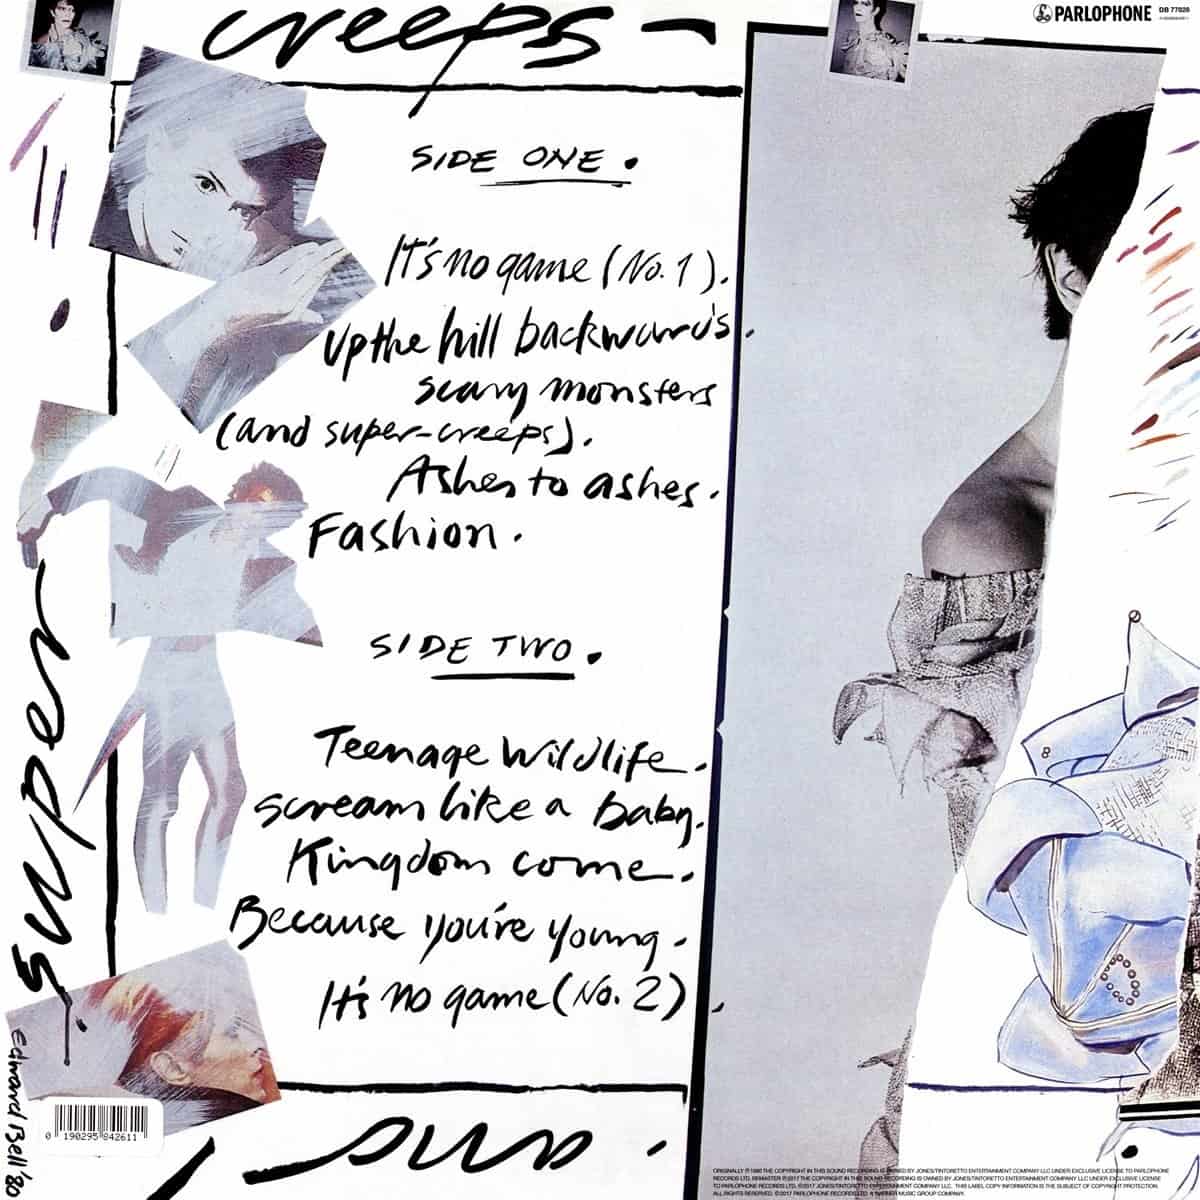 creeps -
PARLOPHONE
DB 77826
SIDE ONE.
It's no game (No. 1).
Up the hill backwards.
scary monsters
(and super-creeps).
Ashes to ashes.
Fashion.
SIDE TWO.
Teenage Wildlife.
scream like a Baby.
Kingdom come.
Because you're young.
It's no game (No. 2).
super
Edward Bell '80
0 190295 842611
and
ORIGINALLY ℗ 1980 THE COPYRIGHT IN THIS SOUND RECORDING IS OWNED BY JONES/TINTORETTO ENTERTAINMENT COMPANY LLC UNDER EXCLUSIVE LICENSE TO PARLOPHONE
RECORDS LTD. REMASTER ℗ 2017 THE COPYRIGHT IN THIS SOUND RECORDING IS OWNED BY JONES/TINTORETTO ENTERTAINMENT COMPANY LLC UNDER EXCLUSIVE LICENSE
TO PARLOPHONE RECORDS LTD. © 2017 JONES/TINTORETTO ENTERTAINMENT COMPANY LLC. THIS LABEL COPY INFORMATION IS THE SUBJECT OF COPYRIGHT PROTECTION.
ALL RIGHTS RESERVED. © 2017 PARLOPHONE RECORDS LTD. A WARNER MUSIC GROUP COMPANY.